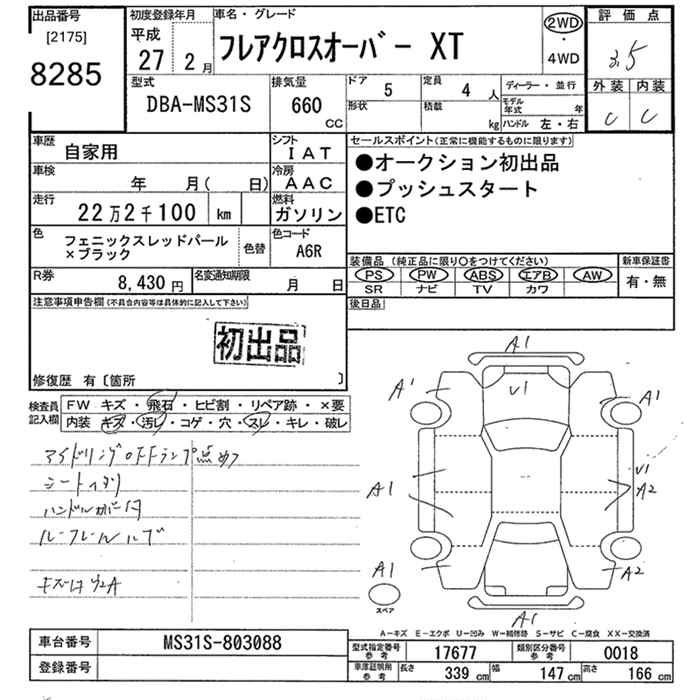 出品番号 初度登録年月 車名・グレード 評価点
[2175] 平成 2WD
8285 27 2月 フレアクロスオーバー XT ・ 3.5
4WD
型式 排気量 ドア 5 定員 4人 ディーラー・並行 外装 内装
DBA-MS31S 660 CC 形状 積載 kg モデル年式 年 C C
ハンドル 左・右
車歴 自家用 シフト IAT セールスポイント(正常に機能するものに限ります)
車検 年 月( 日) 冷房 AAC ●オークション初出品
走行 22万2千100 km 燃料 ガソリン ●プッシュスタート
色 フェニックスレッドパール 色替 色コード A6R ●ETC
×ブラック
装備品(純正品に限り○をつけてください) 新車保証書
R券 8,430円 名変通知期限 月 日 PS PW ABS エアB AW 有・無
SR ナビ TV カワ
注意事項申告欄(不具合内容等は具体的に記入して下さい) 後日品
初出品
修復歴 有〔箇所 〕
検査員 FW キズ・飛石・ヒビ割・リペア跡・×要
記入欄 内装 キズ・汚レ・コゲ・穴・スレ・キレ・破レ
アイドリングOFFランプ点め
ハンドルカバー付
A1
A1 U1 A1
A1 U1
A2
A1 A2
スペア
A1
A-キズ E-エクボ U-凹み W-補修跡 S-サビ C-腐食 XX-交換済
車台番号 MS31S-803088 型式指定番号 参考 17677 類別区分番号 参考 0018
登録番号 車庫証明用 参考 長さ 339 cm 幅 147 cm 高さ 166 cm